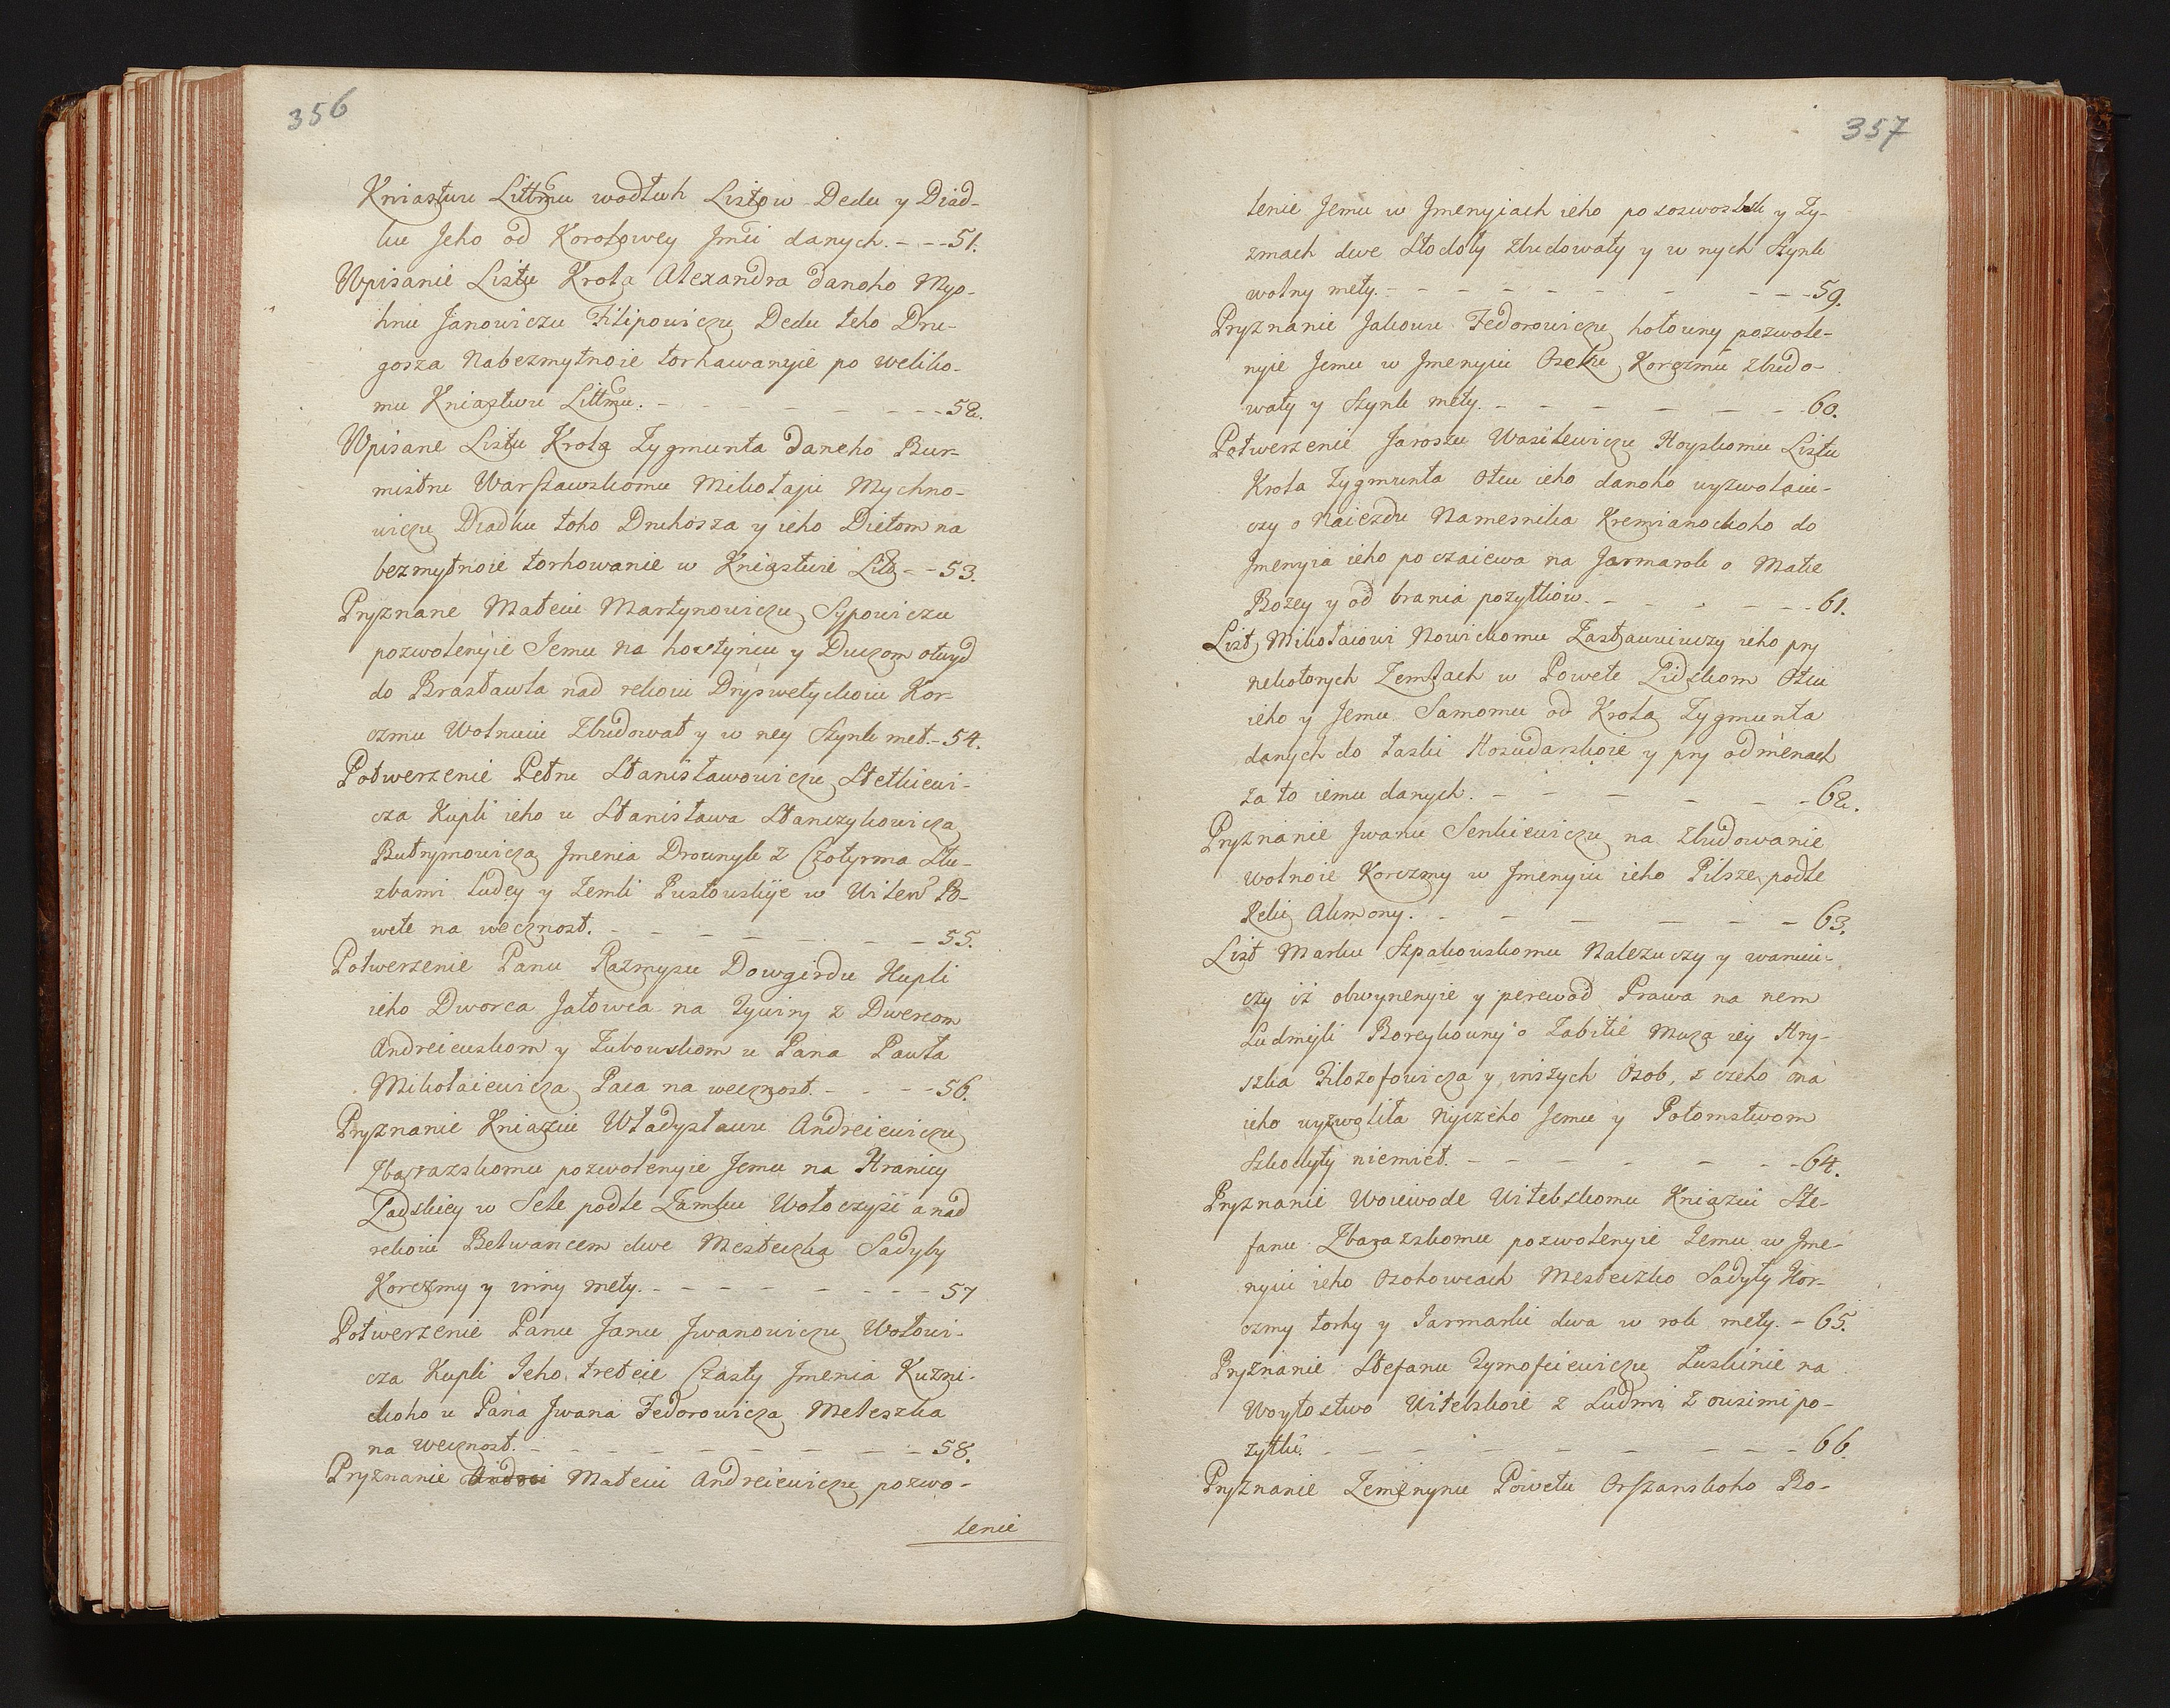 356
Kniastwu Littmu wodłuh Listow Dedu y Diad-
ku Jeho od Korolowey Jmći danych. - - - 51.
Wpisanie Listu Krola Alexandra danoho Myc-
hnu Janowiczu Filipowiczu Dedu teho Dru-
gosza Nabezmytnoie torhawanyie po weliko-
mu Kniastwu Littmu. - - - - - - 52.
Wpisane Listu Krola Zygmunta danoho Bur-
mistru Warszawskomu Mikołaju Mychno-
wiczu Diadku toho Druhosza y ieho Dietom na
bezmytnoie torhowanie w Kniastwie Litt - - 53.
Pryznane Mateiu Martynowiczu Sypowiczu
pozwolenyie Jemu na hostyncu y Duczom otwyd
do Brasławla nad rekoiu Dryswetyckoiu Kor-
czmu Wolnuiu Zbudowat y w ney Szynk met. - 54.
Potwerzenie Petru Stanisławowiczu Stetkiewi-
cza Kupli ieho u Stanisława Stanczykowicza
Butrymowicza Jmenia Drounyk z Czotyrma Słu-
zbami Ludey y Zemli Pustouskije w Witew Po-
wete na wecznost. - - - - - - 55.
Potwerzenie Panu Razmysu Dowgirdu Kupli
ieho Dworca Jałowca na Zywiny z Dworcom
Andreieuskom y Zubowskom u Pana Pawła
Mikołaiewicza Paca na wecznost. - - - 56.
Pryznanie Kniaziu Władysławu Andreiewiczu
Zbarazskomu pozwolenyie Jemu na Hranicy
Ladskiey w Sele podle Zamku Wołoczyszi a nad
rekoiu Bełwancem dwe Mesteczka Sadyty
Korczmy y winy mety. - - - - - - - 57
Potwerzenie Panu Janu Jwanowiczu Wołowi-
cza Kupli Jeho treteie Czasty Jmenia Kuzni-
ckoho u Pana Jwana Fedorowicza Meleszka
na wecznost. - - - - - - - - 58.
Pryznanie Andrei Mateiu Andreiewiczu pozwo-
lenie
357
lenie Jemu w Jmenyiach ieho po y Zy-
zmach dwe Stodoły zbudowaty y w nych Szynk
wolny mety. - - - - - - - - - 59.
Pryznanie Jakowu Fedorowiczu hołouny pozwole-
nyie Jemu w Jmenyiu Oselzu Korczmu zbudo-
waty y Szynk mety. - - - - - - - 60.
Potwerzenie Jaroszu Wasilewiczu Hoyskomu Listu
Krola Zygmunta Otcu ieho danoho wyzwolaiu-
czy o Naiezdu Namesnika Kremianockoho do
Jmenyia ieho poczaiewa na Jarmarok o Matce
Bozey y od brania pozytkow. - - - - - - 61.
List Mikołaiowi Nowickomu Zastawuiuczy ieho pry
nekotorych Zemlach w Powete Lidskom Otcu
ieho y Jemu Samomu od Krola Zygmunta
danych do łaski Hosudarskoie y pry odmenach
za to iemu danych. - - - - - - 62.
Pryznanie Jwanu Senkiewiczu na zbudowanie
wolnoie Korczmy w Jmenyiu ieho Pilsze, podle
Reki Akmony. - - - - - - - 63.
List Marku Szpakouskomu Nalezuczy y waruiu-
czy iż obwynenyie y perewod Prawa na nem
Ludmyli Boreykouny o Zabitie Muza iey Hry-
szka Filozofowicza y inszych Osob, z czeho ona
ieho wyzwoliła Nyczeho Jemu y Potomstwom
Szkodyty niemiet. - - - - - - - 64.
Pryznanie Woiewode Witebskomu Kniaziu Ste-
fanu Zbarazskomu pozwolenyie Jemu w Jme-
nyiu ieho Ozohowcach Mesteczko Sadyty Kor-
czmy torhy y Jarmarki dwa w rok mety. - 65.
Pryznanie Stefanu Tymofeiewiczu Luskinie na
Woytostwo Witebskoie z Ludmi z ousimi po-
zytki. - - - - - - - - - - 66.
Pryznanie Zemenynu Powetu Orszanskoho Bo-